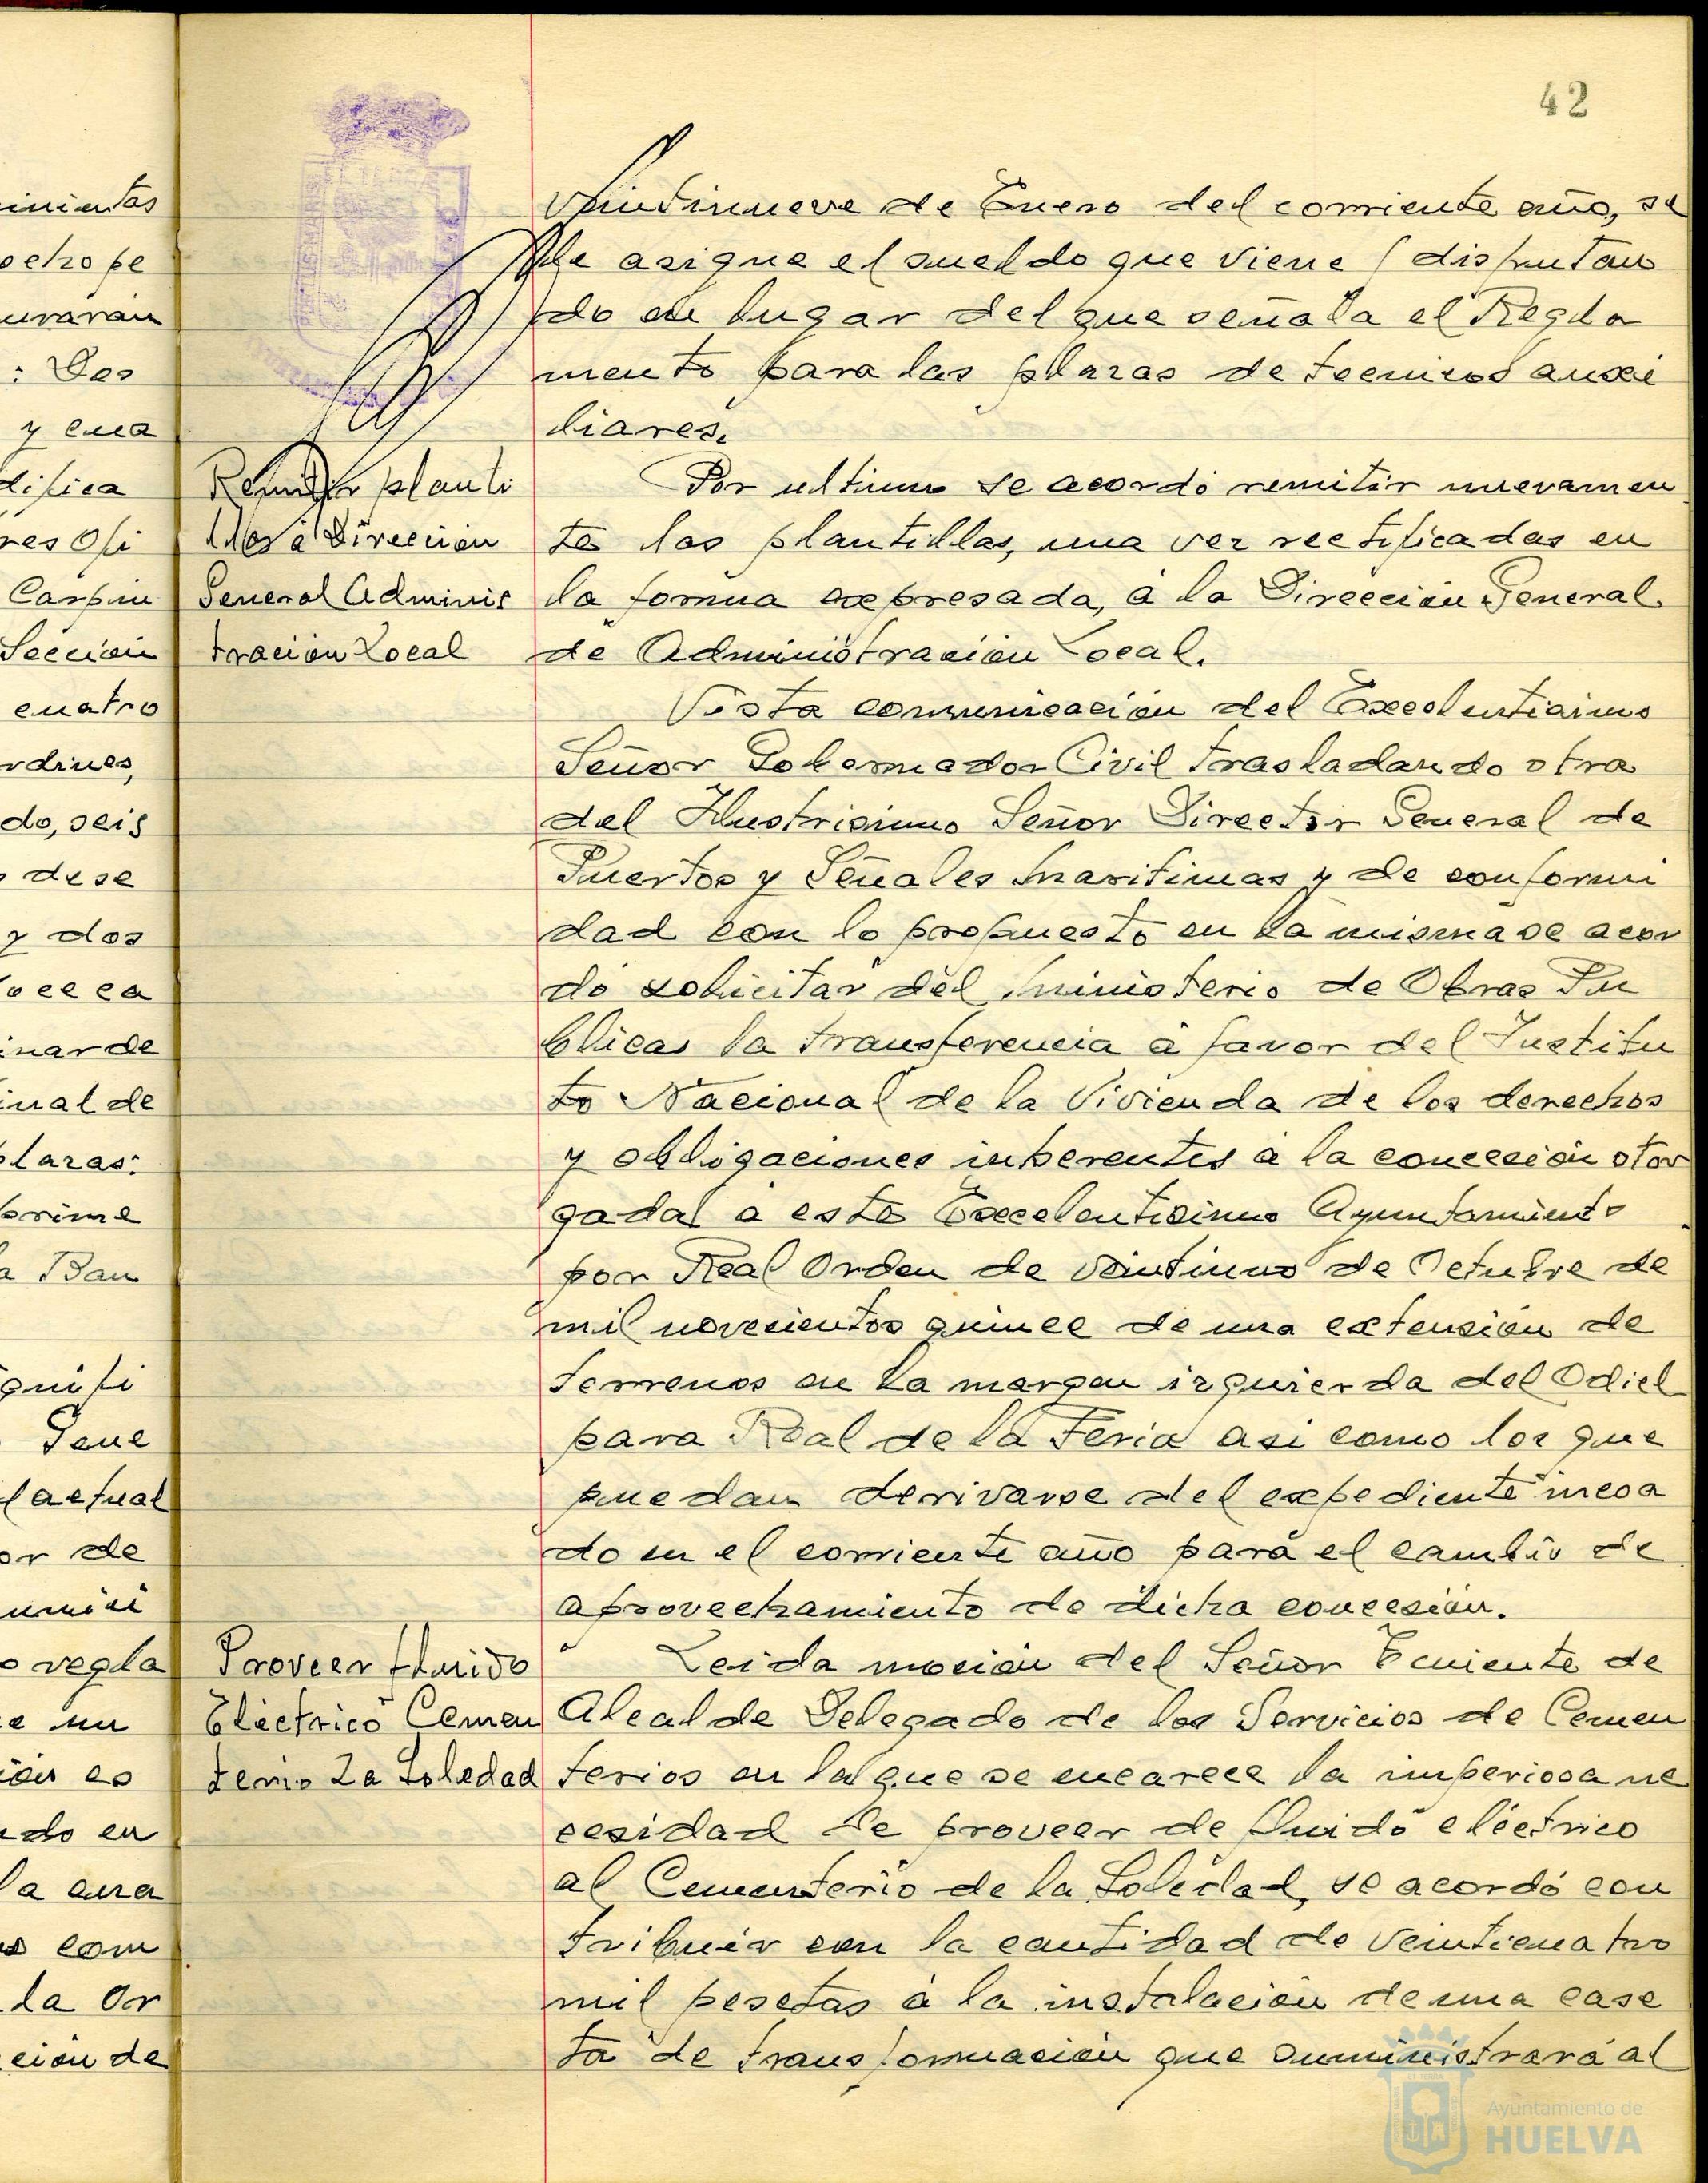 42
veintinueve de Enero del corriente año, se
le asigne el sueldo que viene disfrutan
do en lugar del que señala el Regla
mento para las plazas de tecnicos auxi
liares.
Remitir planti
llas á Direccion
General Adminis
tracion Local
Por ultimo se acordó remitir nuevamen
te las plantillas, una vez rectificadas en
la forma expresada, á la Dirección General
de Administración Local.
Vista comunicación del Excelentisimo
Señor Gobernador Civil trasladando otra
del Ilustrisimo Señor Director General de
Puertos y Señales Maritimas y de conformi
dad con lo propuesto en la misma se acor
dó solicitar del Ministerio de Obras Pu
blicas la transferencia á favor del Institu
to Nacional de la Vivienda de los derechos
y obligaciones inherentes á la concesión otor
gada á este Excelentisimo Ayuntamiento
por Real Orden de veintiuno de Octubre de
mil novecientos quince de una extensión de
terrenos en la margen izquierda del Odiel
para Real de la Feria asi como los que
puedan derivarse del expediente incoa
do en el corriente año para el cambio de
aprovechamiento de dicha concesión.
Proveer fluido
Eléctrico Cemen
terio La Soledad
Leida moción del Señor Teniente de
Alcalde Delegado de los Servicios de Cemen
terios en la que se encarece la imperiosa ne
cesidad de proveer de fluido eléctrico
al Cementerio de la Soledad, se acordó con
tribuir con la cantidad de veinticuatro
mil pesetas á la instalación de una case
ta de transformación que suministrará al
inientas
ocho pe
uraran
: Des
y una
difica
res Ofi
Carpin
Sección
cuatro
rdines,
do, seis
dese
y dos
inar de
inal de
plazas:
prime
a Ban
quifi
Gene
l actual
or de
o regla
e un
ión es
do en
la cura
com
la Or
ción de
Ayuntamiento de
HUELVA